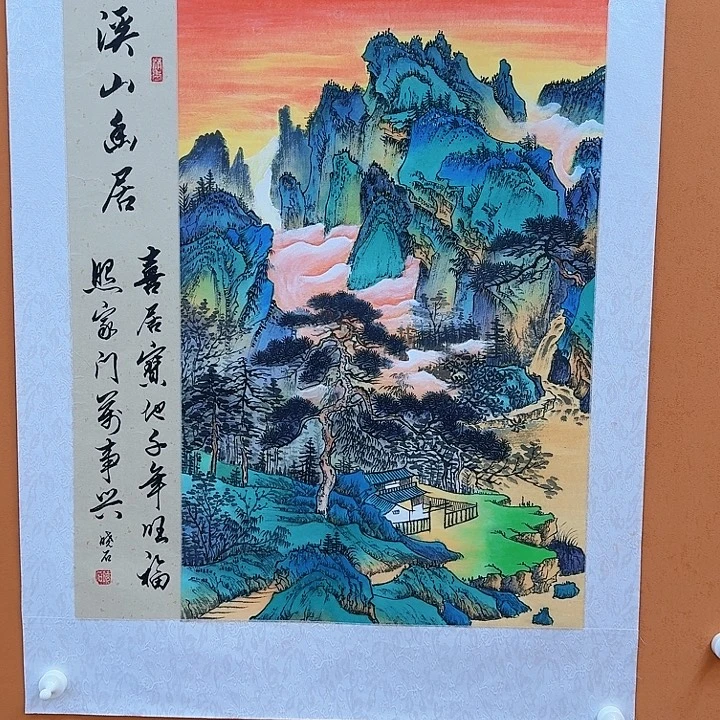 溪山幽居
喜居寶地千年旺福
照家门萬事兴
晓石